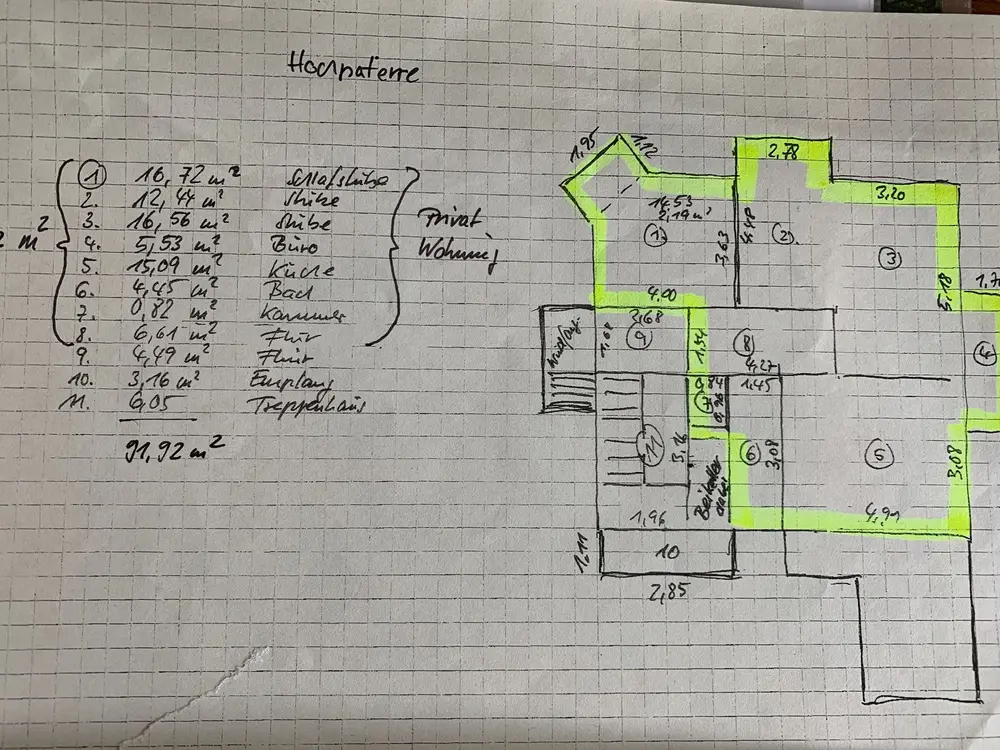 Hochpaterre
1 16,72 m² Schlafstube
2. 12,44 m² Stube
3. 16,56 m² Stube
4. 5,53 m² Büro
5. 15,09 m² Küche
6. 4,45 m² Bad
7. 0,82 m² Kammer
8. 6,61 m² Flur
9. 4,49 m² Flur
10. 3,16 m² Empfang
11. 6,05 Treppenhaus
91,92 m²
m²
Privat
Wohnung
1,95
1,12
2,78
3,20
14,53
2,19 m²
1.
3,63
4,48
2.
3
5,18
4,00
2,68
9
1,68
1,54
8
4,27
4
1,45
7
11
3,16
6
3,08
5
3,08
1,96
4,91
1,11
10
2,85